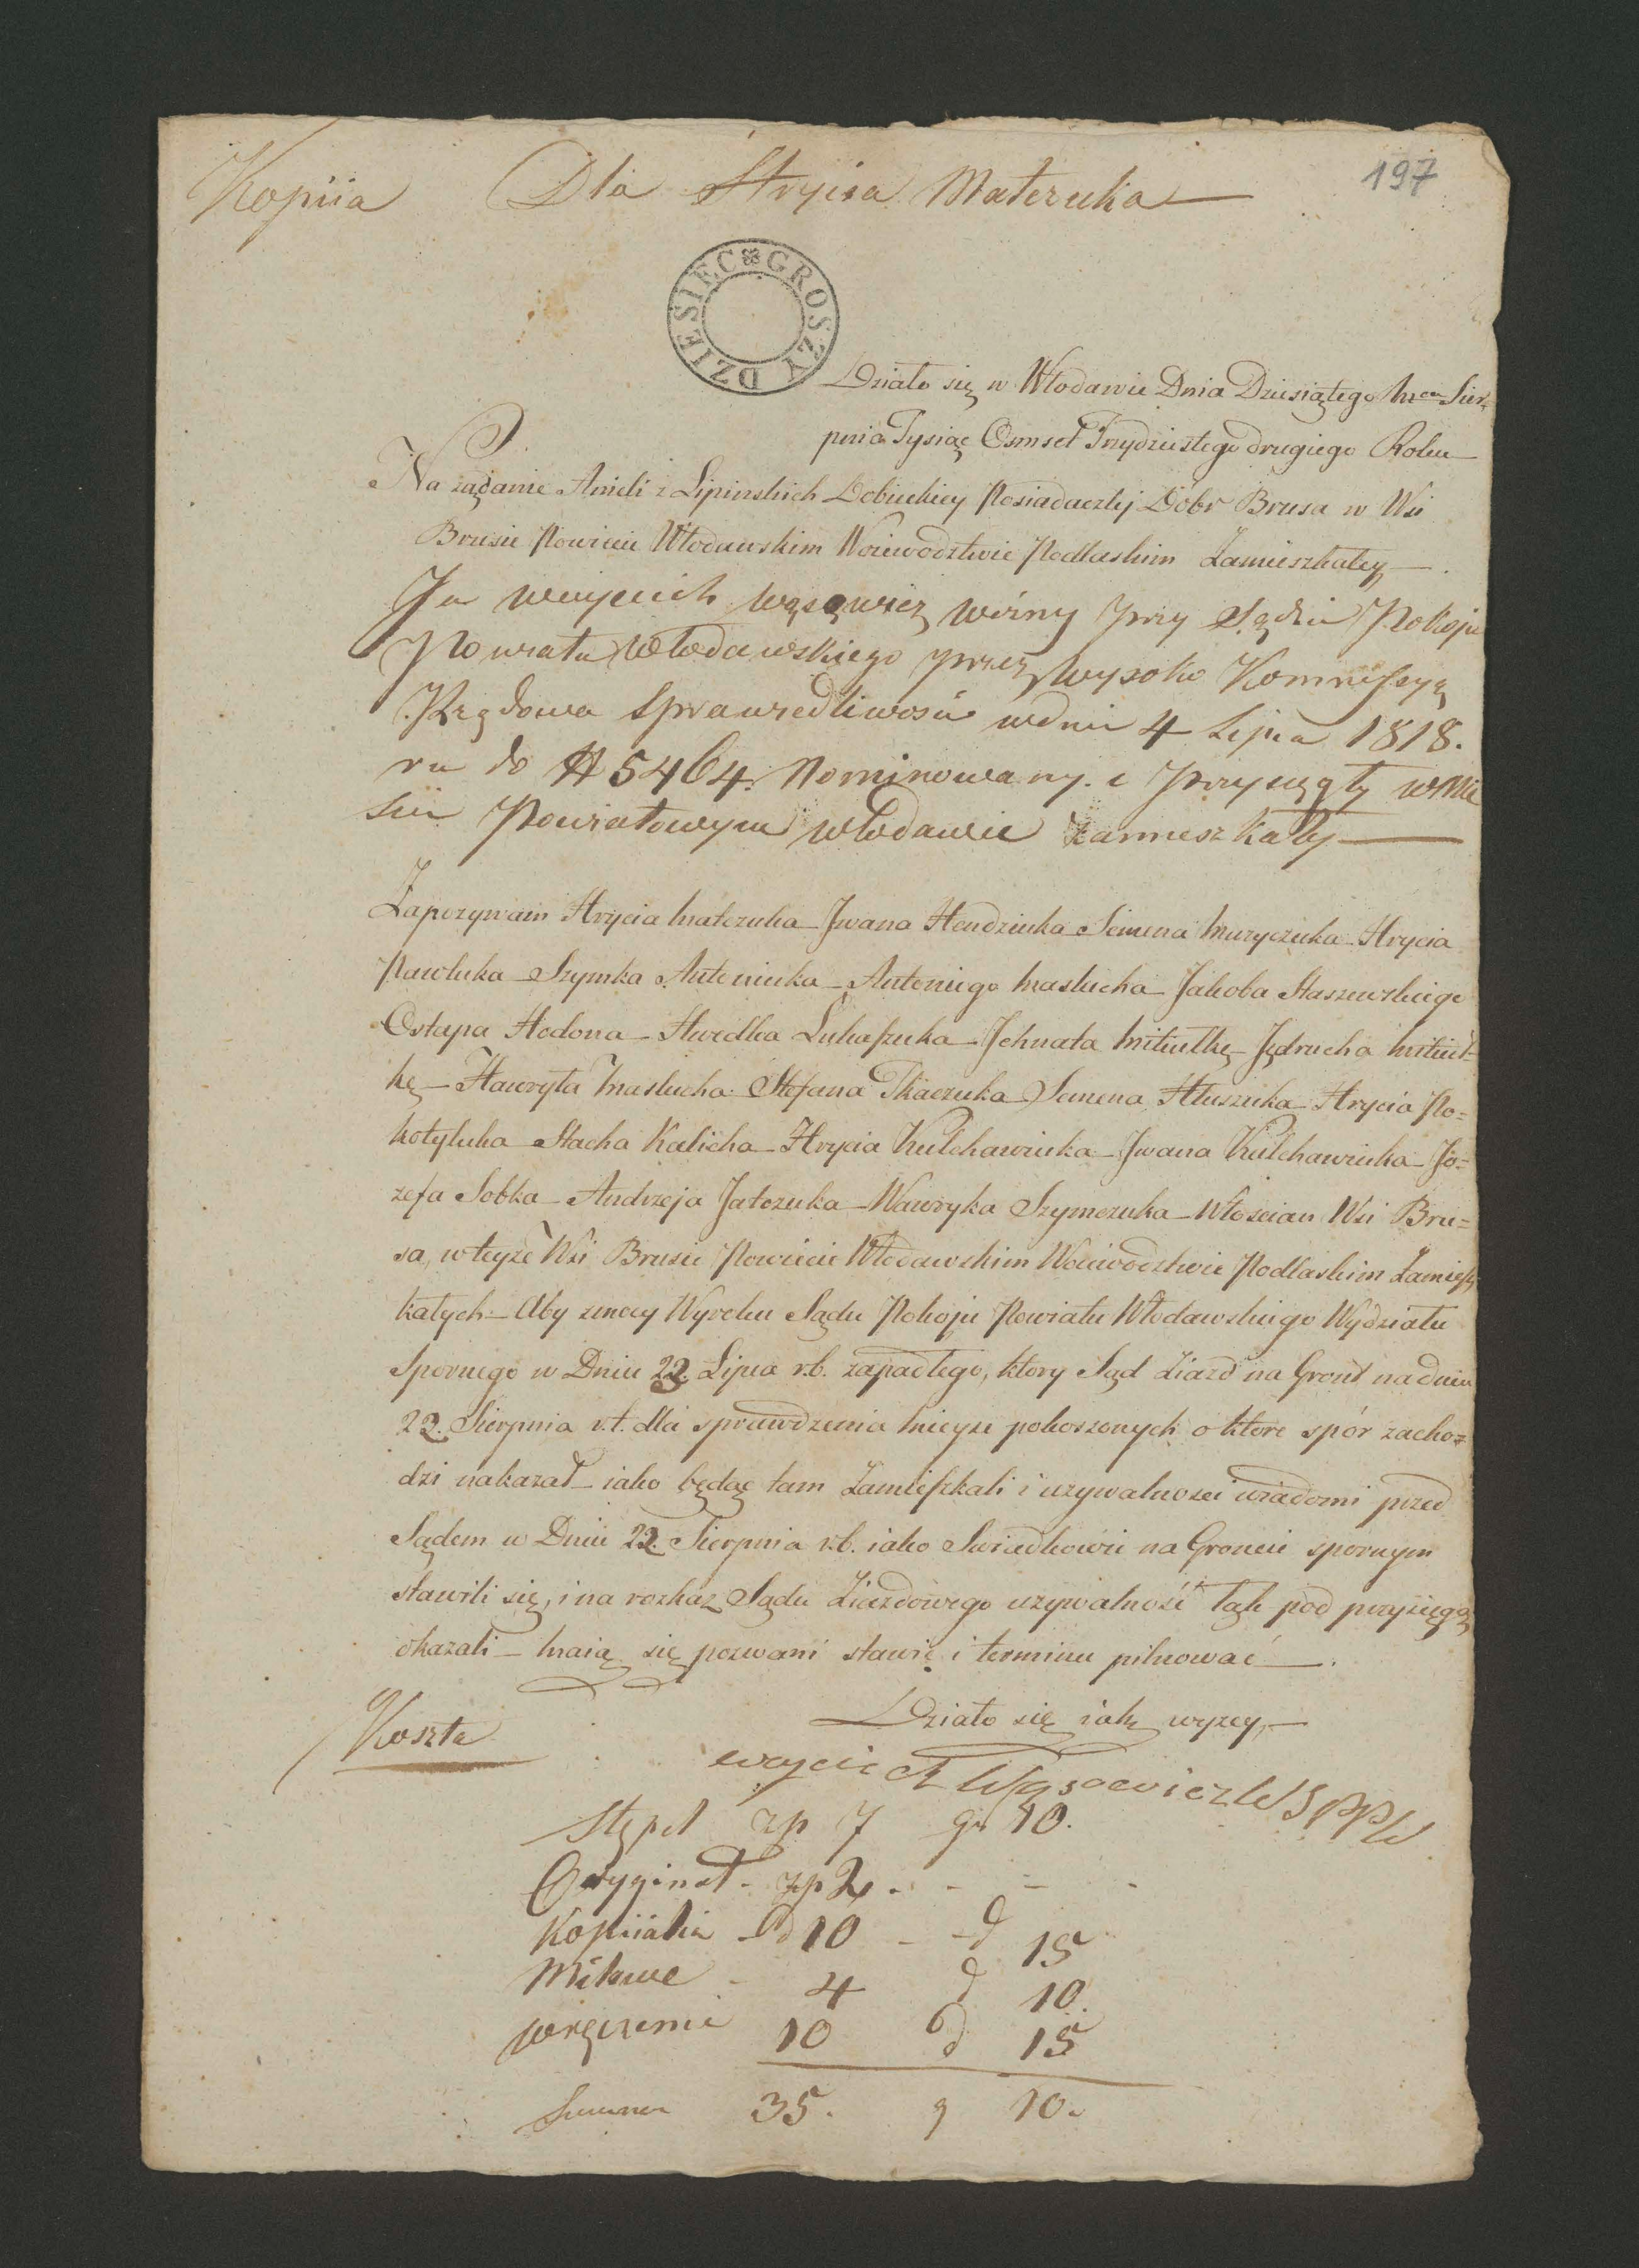 197
Kopiia Dla Hrycia Matczuka
DZIESIEC GROSZY
Działo się w Włodawie Dnia Dziesiątego Mca Sier,
pnia Tysiąc Osmset Trzydziestego drugiego Roku
Na żądanie Anieli z Lipinskich Dobieckiey Posiadaczkij Dóbr Brusa w Wsi
Brusie Powiecie Włodawskim Woiewództwie Podlaskim Zamieszkałey
Ja woyciech wąsowicz wózny przy Sądzie Pokoju
Powiatu włodawskiego przez wysoko Kommissyą
Rządowa Sprawiedliwosci w dniu 4 Lipca 1818.
ru do N 5464. Nominowany. i przysięgły w Mie
scie Powiatowym włodawie zamieszkały
Zapozywam Hrycia Matczuka Jwana Hendziuka Semena Muryczuka Hrycia
Pawluka Szymka Antoniuka Antoniego Maslucha Jakoba Staszewskiego
Ostapa Hodona Hwedka Lukaszuka Jchnata Mitiutkę Jędrucha Mitiut-
kę Hawryła Maslucha Stefana Tkaczuka Semena Hluszuka Hrycia Po=
kotyluka Stacha Kalicha Hrycia Kulchawiuka Jwana Kulchawiuka Jo=
zefa Sobka Andrzeja Jatczuka Wawryka Szymczuka Włoscian Wsi Bru=
sa, w teyże Wsi Brusie Powiecie Włodawskim Woiewodztwie Podlaskim Zamiesz,
kałych Aby z mocy Wyroku Sądu Pokoju Powiatu Włodawskiego Wydziału
Spornego w Dniu 23. Lipca r.b. zapadłego, ktory Sąd Ziazd na Gront na dniu
22. Sierpnia r.t. dla sprawdzenia mieysc pokoszonych o ktore spór zacho=
dzi nakazał iako będąc tam Zamieszkali i używalnosci wiadomi przed
Sądem w Dniu 22. Sierpnia r.b. iako Swiadkowie na Groncie spornym
stawili się, i na rozkaz Sądu Ziazdowego używalność tąk pod przysięgą
okazali maią się pozwani stawić i terminu pilnować
Działo się iak wyzey,
Koszta
woyciech Wąsowicz WSPPW
Stępel zp 7 gr 10.
Oryginał - zp 2 . - -
Kopiialia - d 10 - d 15
Milowe - 4 d 10.
wręczenie 10 d 15
Summa 35. g 10.